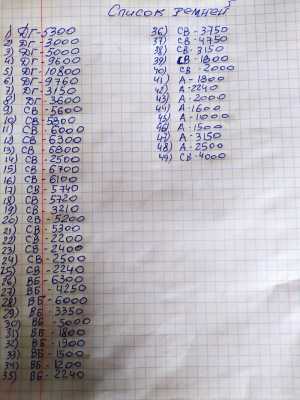 Список ремней
1) ДГ-5300
2) ДГ-3000
3) ДГ-5000
4) ДГ-9600
5) ДГ-10800
6) ДГ-9760
7) ДГ-3150
8) ДГ-3600
9) СВ-5600
10) СВ-5800
11) СВ-6000
12) СВ-6300
13) СВ-6800
14) СВ-2500
15) СВ-6700
16) СВ-6100
17) СВ-5740
18) СВ-5720
19) СВ-3210
20) СВ-5200
21) СВ-5300
22) СВ-2200
23) СВ-2400
24) СВ-2500
25) СВ-2240
26) ВБ-6300
27) ВБ-4250
28) ВБ-6000
29) ВБ-3350
30) ВБ-5000
31) ВБ-1800
32) ВБ-1900
33) ВБ-1500
34) ВБ-1200
35) ВБ-2240
36) СВ-3750
37) СВ-4750
38) СВ-3150
39) СВ-1800
40) СВ-2000
41) А-1800
42) А-2240
43) А-2000
44) А-1600
45) А-1000
46) А-1500
47) А-3150
48) А-2500
49) СВ-4000